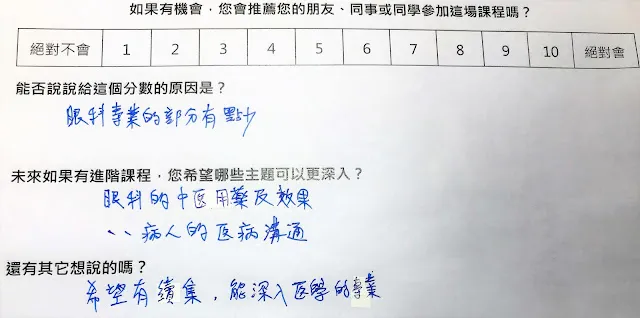 如果有機會，您會推薦您的朋友、同事或同學參加這場課程嗎？
絕對不會 1 2 3 4 5 6 7 8 9 10 絕對會
能否說說給這個分數的原因是？
眼科專業的部分有點少
未來如果有進階課程，您希望哪些主題可以更深入？
眼科的中医用藥及效果
、、病人的医病溝通
還有其它想說的嗎？
希望有續集，能深入医學的專業